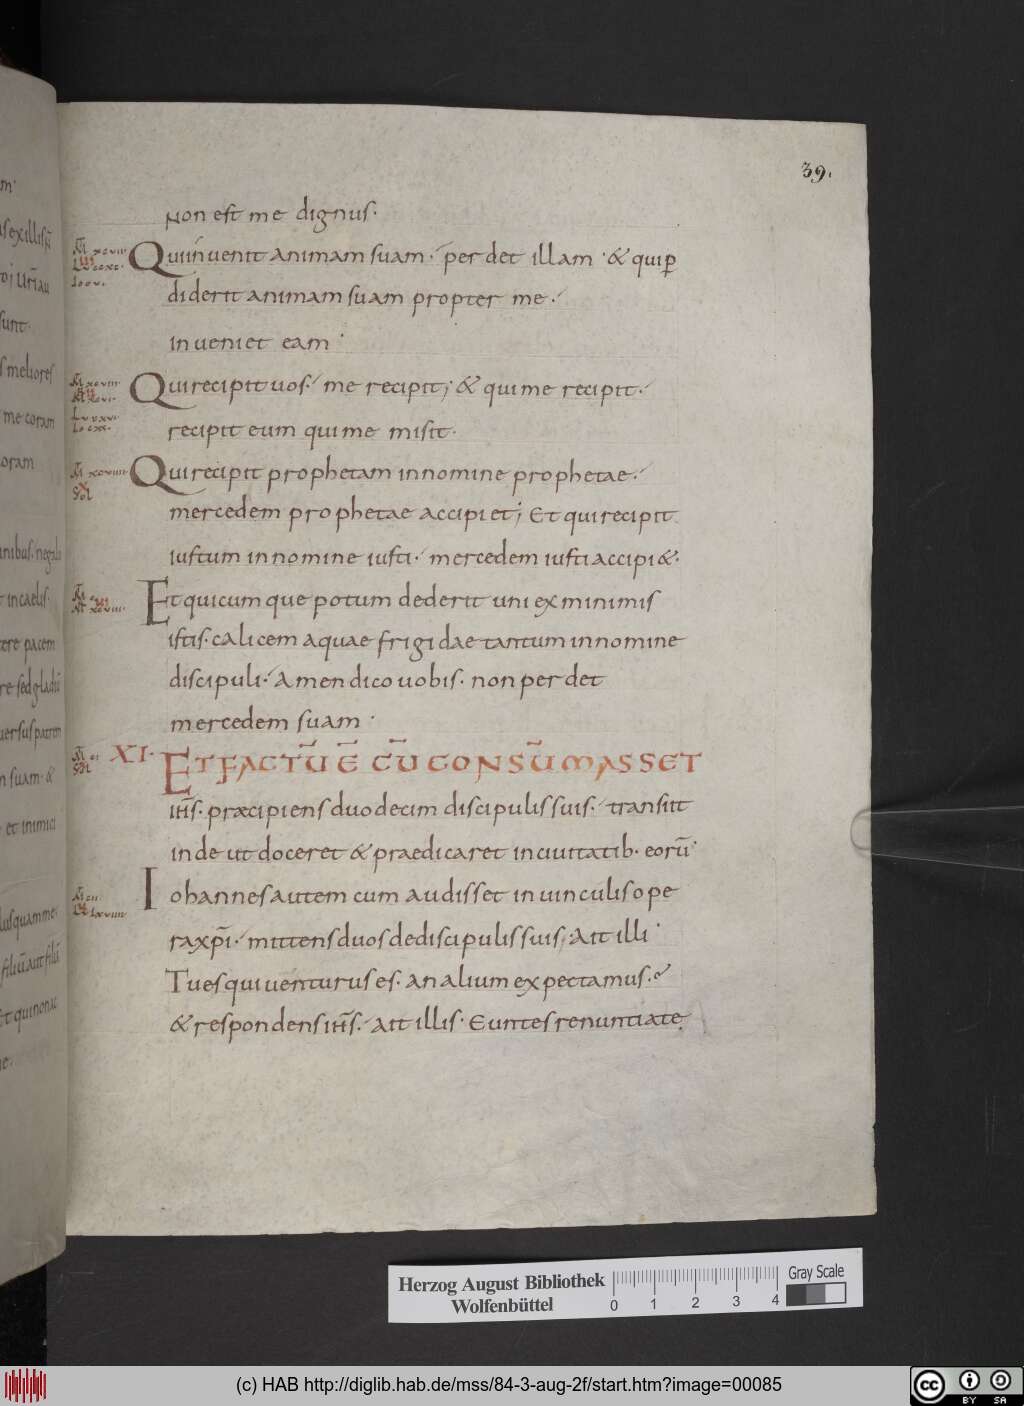 39.
non est me dignus.
Qui inuenit animam suam. perdet illam. & qui p̄
diderit animam suam propter me.
inueniet eam.
Qui recipit uos. me recipit; & qui me recipit.
recipit eum qui me misit.
Qui recipit prophetam in nomine prophetae.
mercedem prophetae accipiet; Et qui recipit
iustum in nomine iusti. mercedem iusti accipi&.
Et quicumque potum dederit uni ex minimis
istis. calicem aquae frigidae tantum in nomine
discipuli. Amen dico uobis. non perdet
mercedem suam.
XI. ET FACTŪ Ē CŪ CONSŪMASSET
ih̄s. præcipiens duodecim discipulis suis. transiit
inde ut doceret & praedicaret in ciuitatib. eorū.
Iohannes autem cum audisset in uinculis ope
ra xp̄i. mittens duos de discipulis suis. Ait illi.
Tu es qui uenturus es. an alium expectamus.
& respondens ih̄s. Ait illis. Euntes renuntiate
Herzog August Bibliothek
Wolfenbüttel
0 1 2 3 4
Gray Scale
(c) HAB http://diglib.hab.de/mss/84-3-aug-2f/start.htm?image=00085
cc BY SA